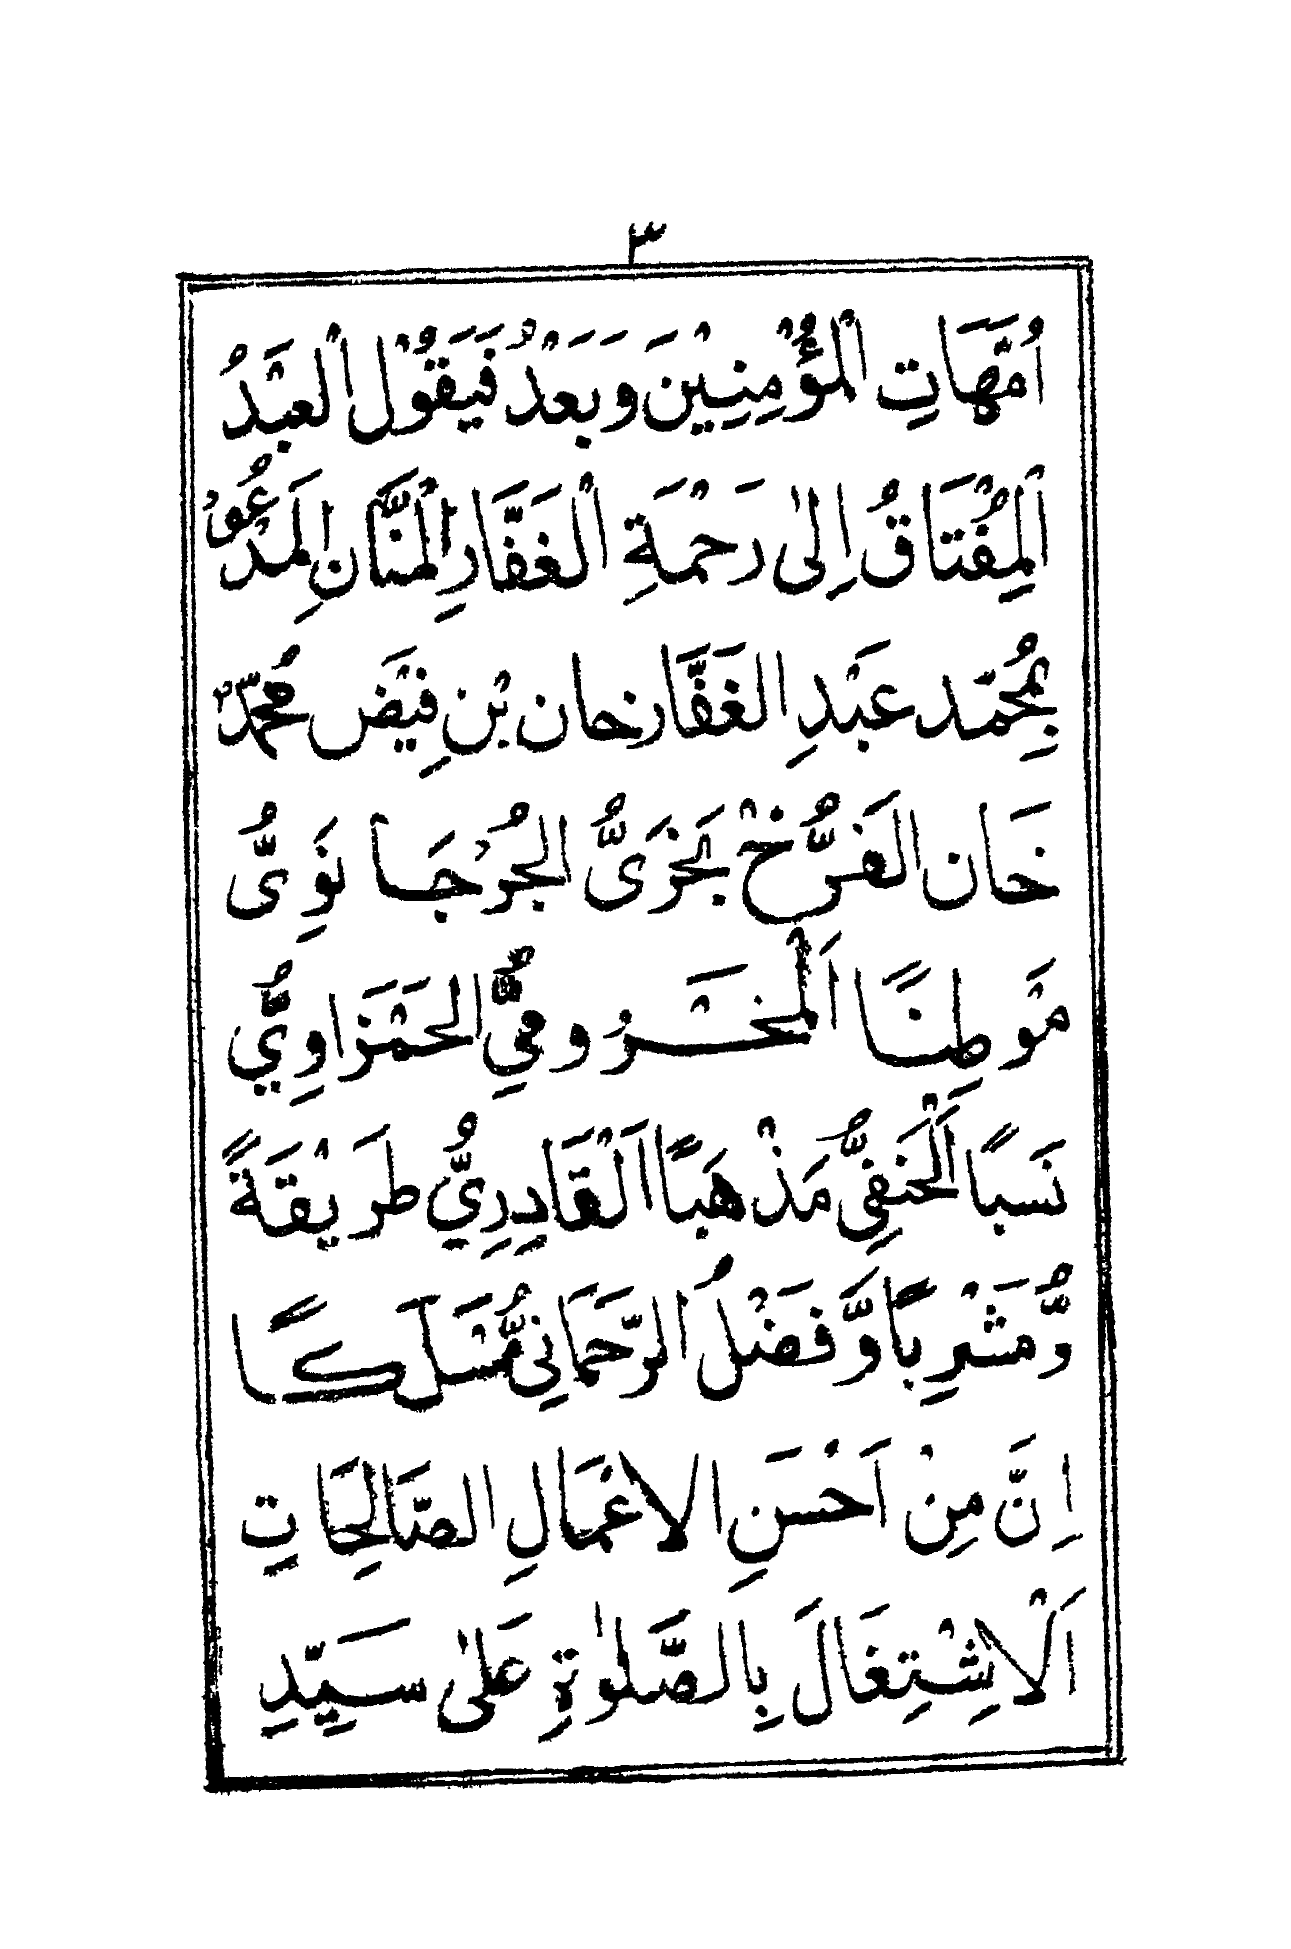 ٣
اُمَّهَاتِ الْمُؤْمِنِيْنَ وَبَعْدُ فَيَقُوْلُ الْعَبْدُ
الْمُفْتَاقُ اِلٰى رَحْمَةِ الْغَفَّارِ الْمَنَّانِ الْمَدْعُوْ
بِمُحَمَّد عَبْدِ الْغَفَّارخان بْنِ فِيَضْ مُحَمَّدْ
خَان الْفَرُّخْ بَخْرَىُّ الْجُرْجَانَوِىُّ
مَوْطِنًا اَلْمَخْزُومِىُّ الْحَمْزَاوِيُّ
نَسَبًا اَلْحَنَفِىُّ مَذْهَبًا اَلْقَادِرِيُّ طَرِيْقَةً
وَّمَشْرِبًا وَّفَضْلُ الرَّحْمَانِىُّ مَسْلَكًا
اِنَّ مِنْ اَحْسَنِ الاَعْمَالِ الصَّالِحَاتِ
اَلْاِشْتِغَالَ بِالصَّلٰوةِ عَلٰى سَيِّدِ